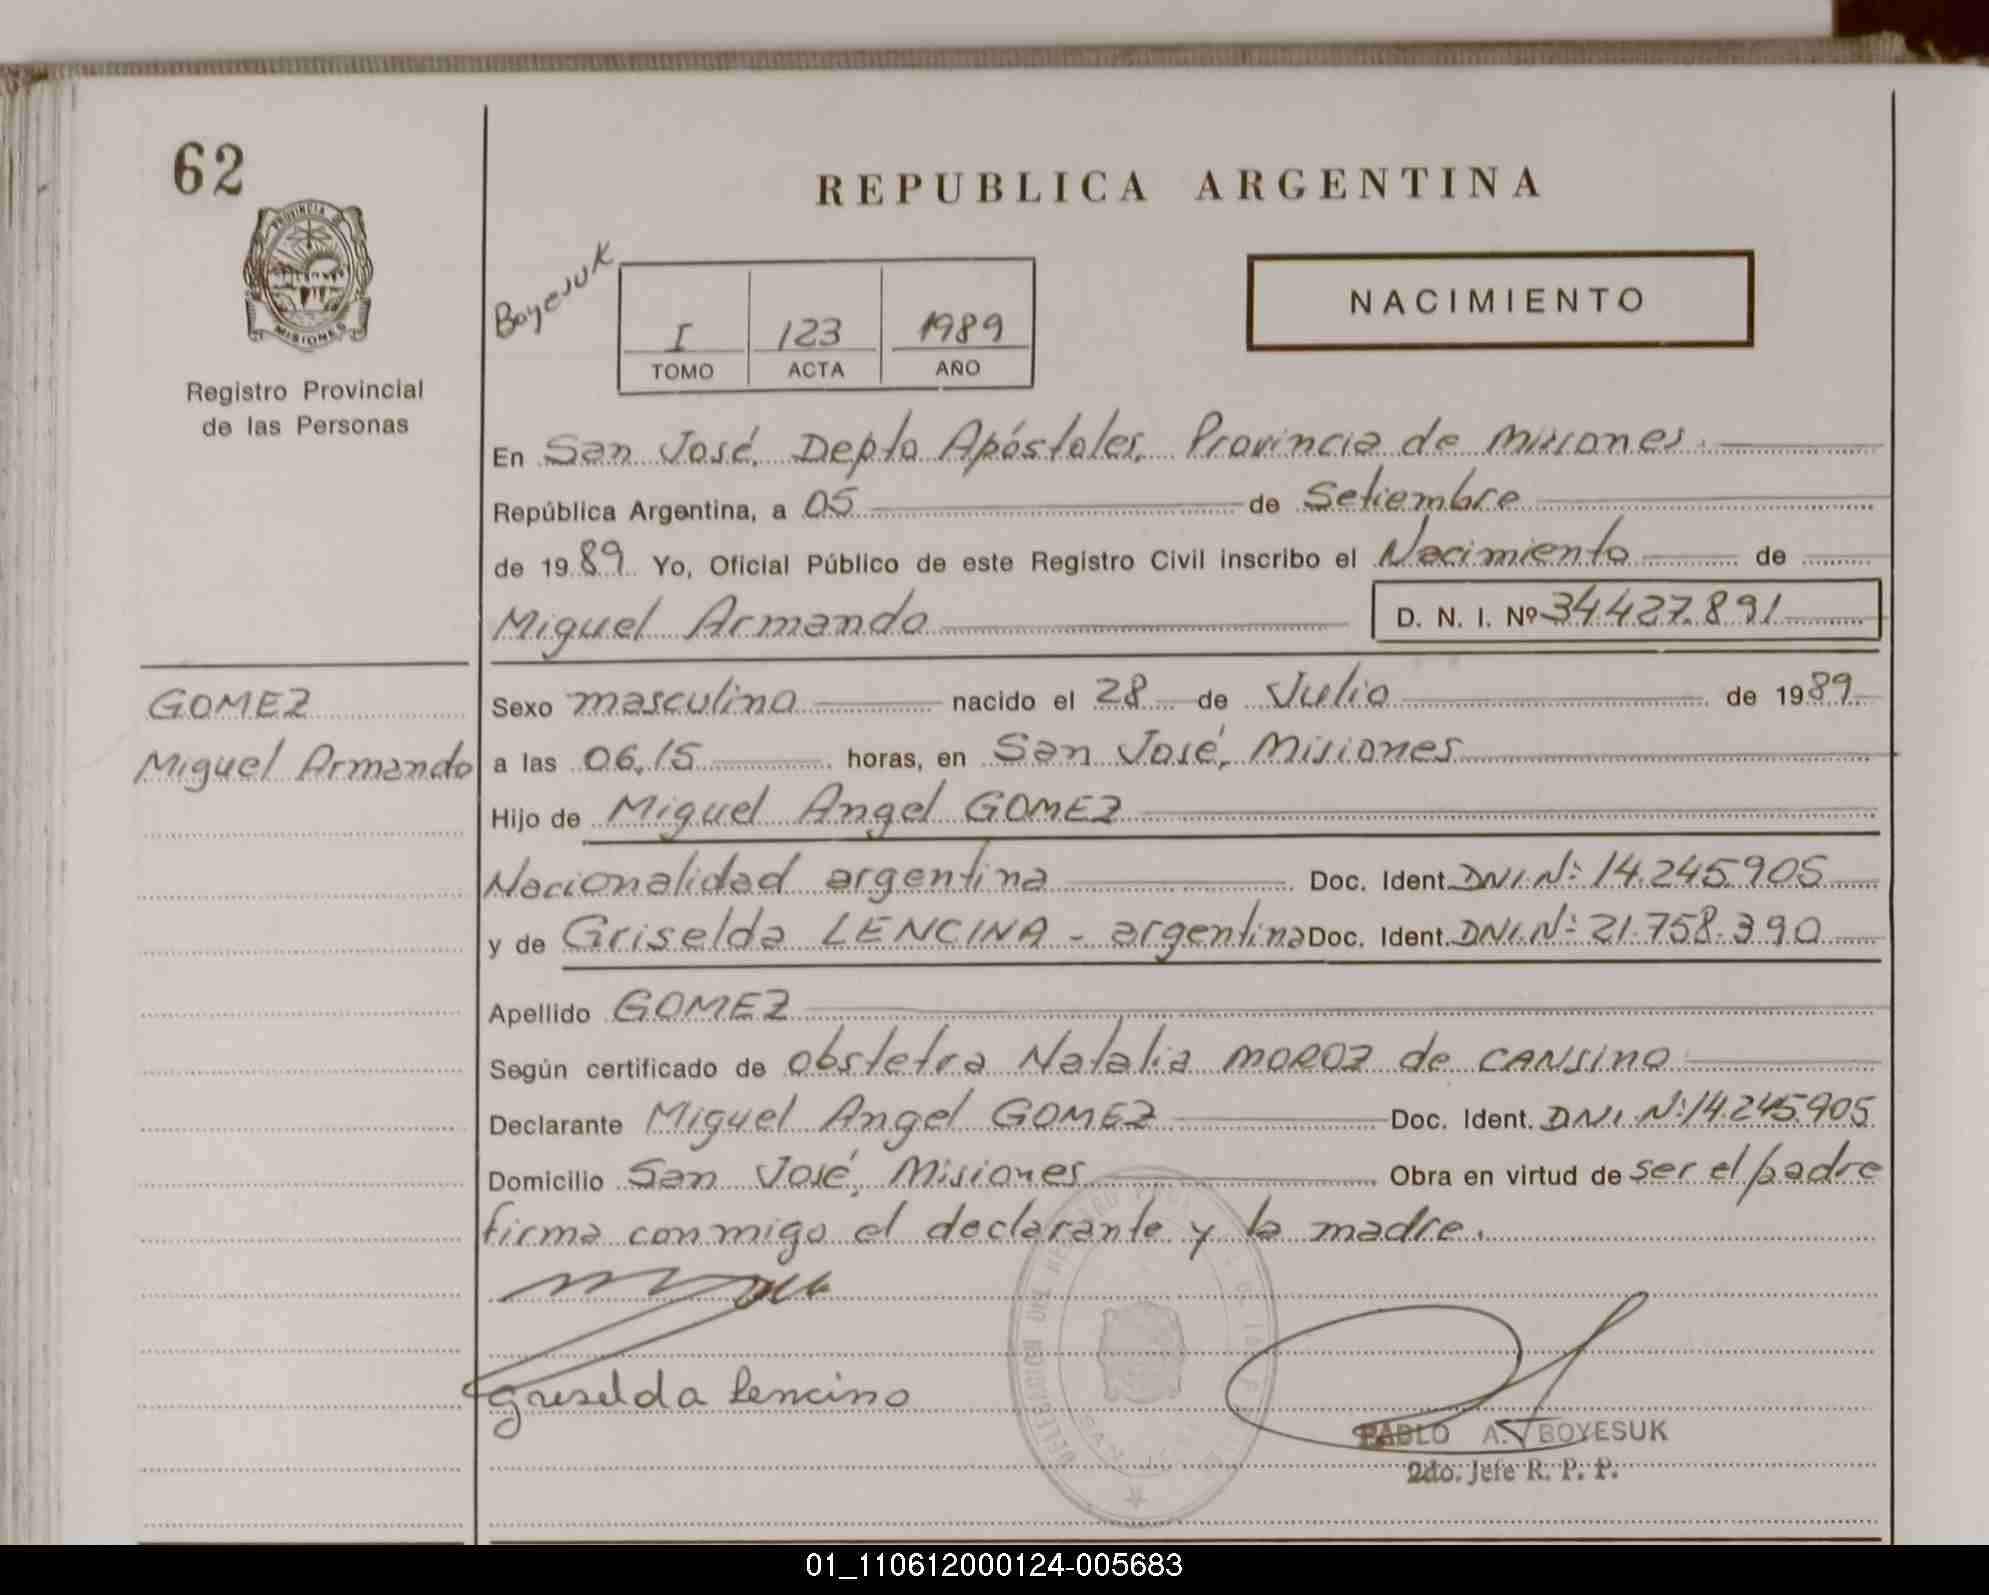 62
REPUBLICA ARGENTINA
PROVINCIA DE
MISIONES
Registro Provincial
de las Personas
Boyesuk
I 123 1989
TOMO ACTA AÑO
NACIMIENTO
En San José, Depto Apóstoles, Provincia de Misiones.
República Argentina, a 05 de Setiembre
de 1989 Yo, Oficial Público de este Registro Civil inscribo el Nacimiento de
Miguel Armando D. N. I. Nº 34.427.891
GOMEZ
Miguel Armando
Sexo masculino nacido el 28 de Julio de 1989
a las 06,15 horas, en San José, Misiones
Hijo de Miguel Angel GOMEZ
Nacionalidad argentina Doc. Ident. DNI.Nº: 14.245.905
y de Griselda LENCINA - argentina Doc. Ident. DNI.Nº: 21.758.390
Apellido GOMEZ
Según certificado de obstetra Natalia MOROZ de CANSINO
Declarante Miguel Angel GOMEZ Doc. Ident. DNI Nº: 14.245.905
Domicilio San José, Misiones Obra en virtud de ser el padre
firma conmigo el declarante y la madre.
Griselda Lencino
DELEGACION DEL REGISTRO
PABLO A. BOYESUK
2do. Jefe R. P. P.
01_110612000124-005683